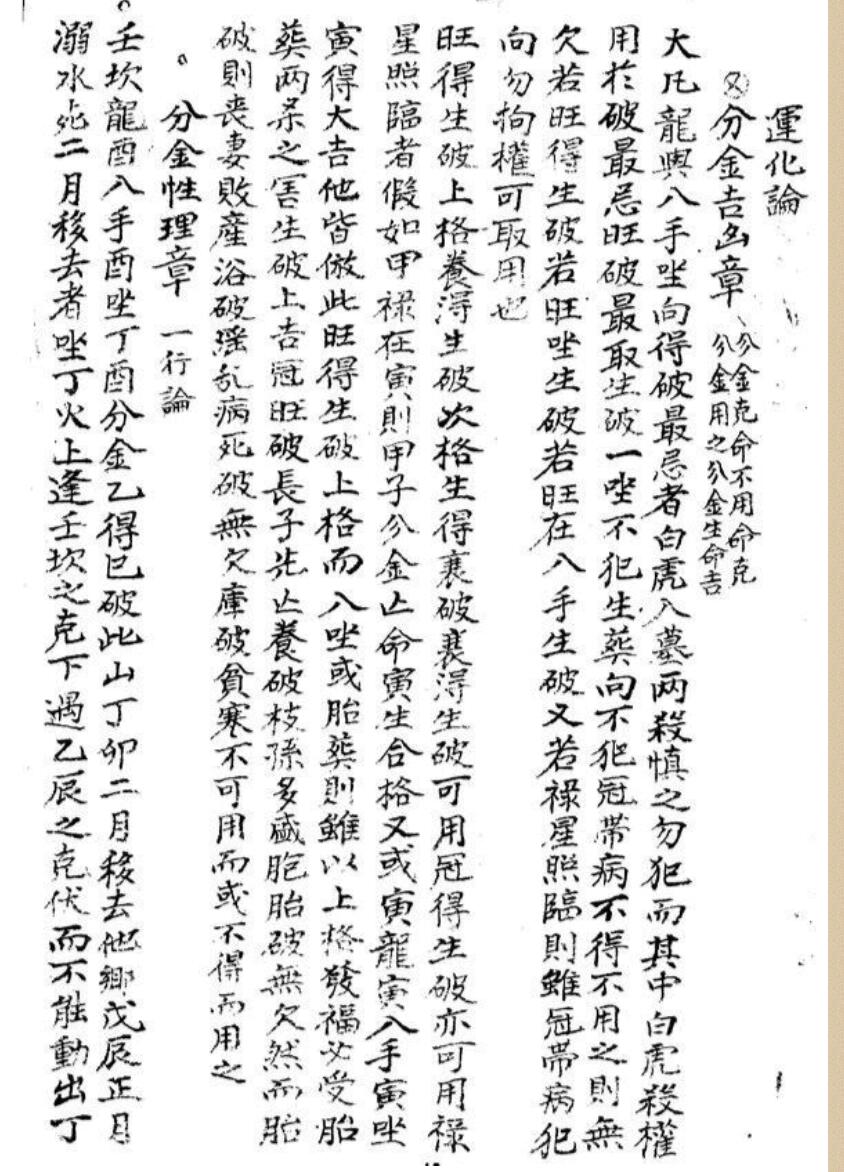 運化論
分金吉凶章 分金克命不用命克
分金用之分金生命吉
大凡龍與八手坐向得破最忌者白虎入墓两殺慎之勿犯而其中白虎殺權
用於破最忌旺破最取生破一坐不犯生葬向不犯冠帯病不得不用之則無
欠若旺得生破若旺坐生破若旺在八手生破又若禄星照臨則雖冠帯病犯
向勿拘權可取用也
旺得生破上格養得生破次格生得衰破衰得生破可用冠得生破亦可用禄
星照臨者假如甲禄在寅則甲子分金亡命寅生合格又或寅龍寅八手寅坐
寅得大吉他皆倣此旺得生破上格而八坐或胎葬則雖以上格發福必受胎
葬两杀之害生破上吉冠旺破長子先亡養破枝孫多盛胞胎破無欠然而胎
破則丧妻敗産浴破滛乱病死破無欠庫破貧寒不可用而或不得而用之
分金性理章 一行論
壬坎龍酉八手酉坐丁酉分金乙得巳破此山丁卯二月移去他鄉戊辰正月
溺水死二月移去者坐丁火上逢壬坎之克下遇乙辰之克伏而不能動出丁